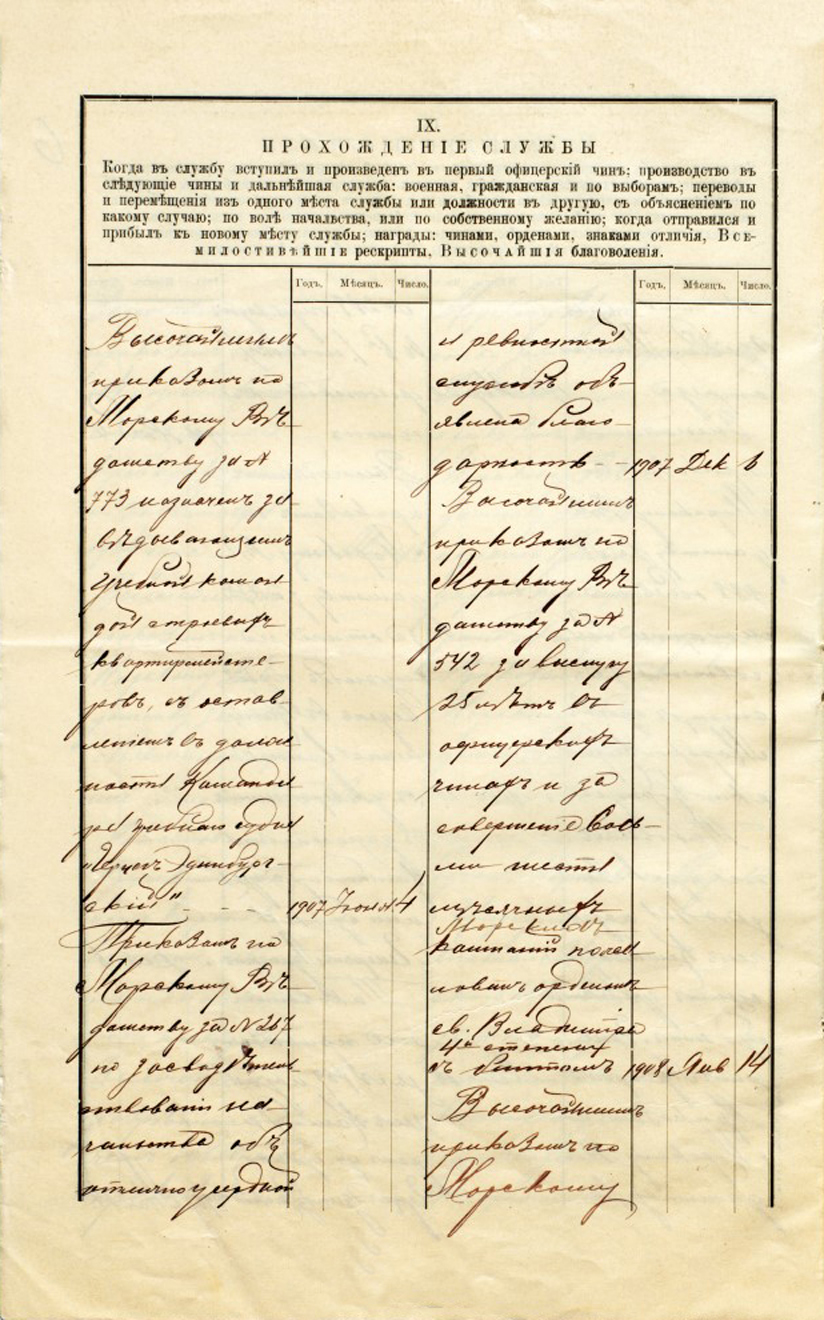 IX.
ПРОХОЖДЕНІЕ СЛУЖБЫ
Когда въ службу вступилъ и произведенъ въ первый офицерскій чинъ; производство въ
слѣдующіе чины и дальнѣйшая служба: военная, гражданская и по выборамъ; переводы
и перемѣщенія изъ одного мѣста службы или должности въ другую, съ объясненіемъ по
какому случаю; по волѣ начальства, или по собственному желанію; когда отправился и
прибылъ къ новому мѣсту службы; награды: чинами, орденами, знаками отличія, Все-
милостивѣйшіе рескрипты, Высочайшія благоволенія.
Годъ. Мѣсяцъ. Число.
Высочайшимъ
приказомъ по
Морскому Вѣ-
домству за №
773 назначенъ за-
вѣдывающимъ
Учебной коман-
дой строевыхъ
квартирмейсте-
ровъ, съ остав-
леніемъ въ долж-
ности Команди-
ра учебнаго судна
"Герцогъ Эдинбург-
скій" - - - 1907 Іюня 4
Приказомъ по
Морскому Вѣ-
домству за № 267
по засвидѣтель-
ствованію на-
чальства объ
отлично усердной
Годъ. Мѣсяцъ. Число.
и ревностной
службѣ объ-
явлена благо-
дарность - - 1907 Дек 6
Высочайшимъ
приказомъ по
Морскому Вѣ-
домству за №
542 за выслугу
25 лѣтъ въ
офицерскихъ
чинахъ и за
совершеніе вось-
ми шести
мѣсячныхъ
Морскихъ
кампаній пожа-
лованъ орденомъ
св. Владиміра
4й степени
съ бантомъ 1908 Янв 14
Высочайшимъ
приказомъ по
Морскому